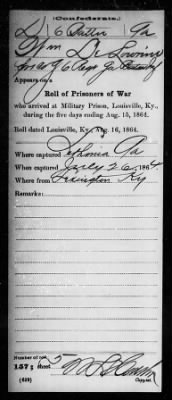 (Confederate.)
D 6 Battn Ga
Wm D
6 Regt Ga
Appears on a
Roll of Prisoners of War
who arrived at Military Prison, Louisville, Ky.,
during the five days ending Aug. 15, 1864.
Roll dated Louisville, Ky., Aug. 16, 1864.
Where captured Ga
When captured July 26, 1864.
Where from Lexington Ky
Remarks:
Number of roll:
157; sheet 5
(639) Copyist.